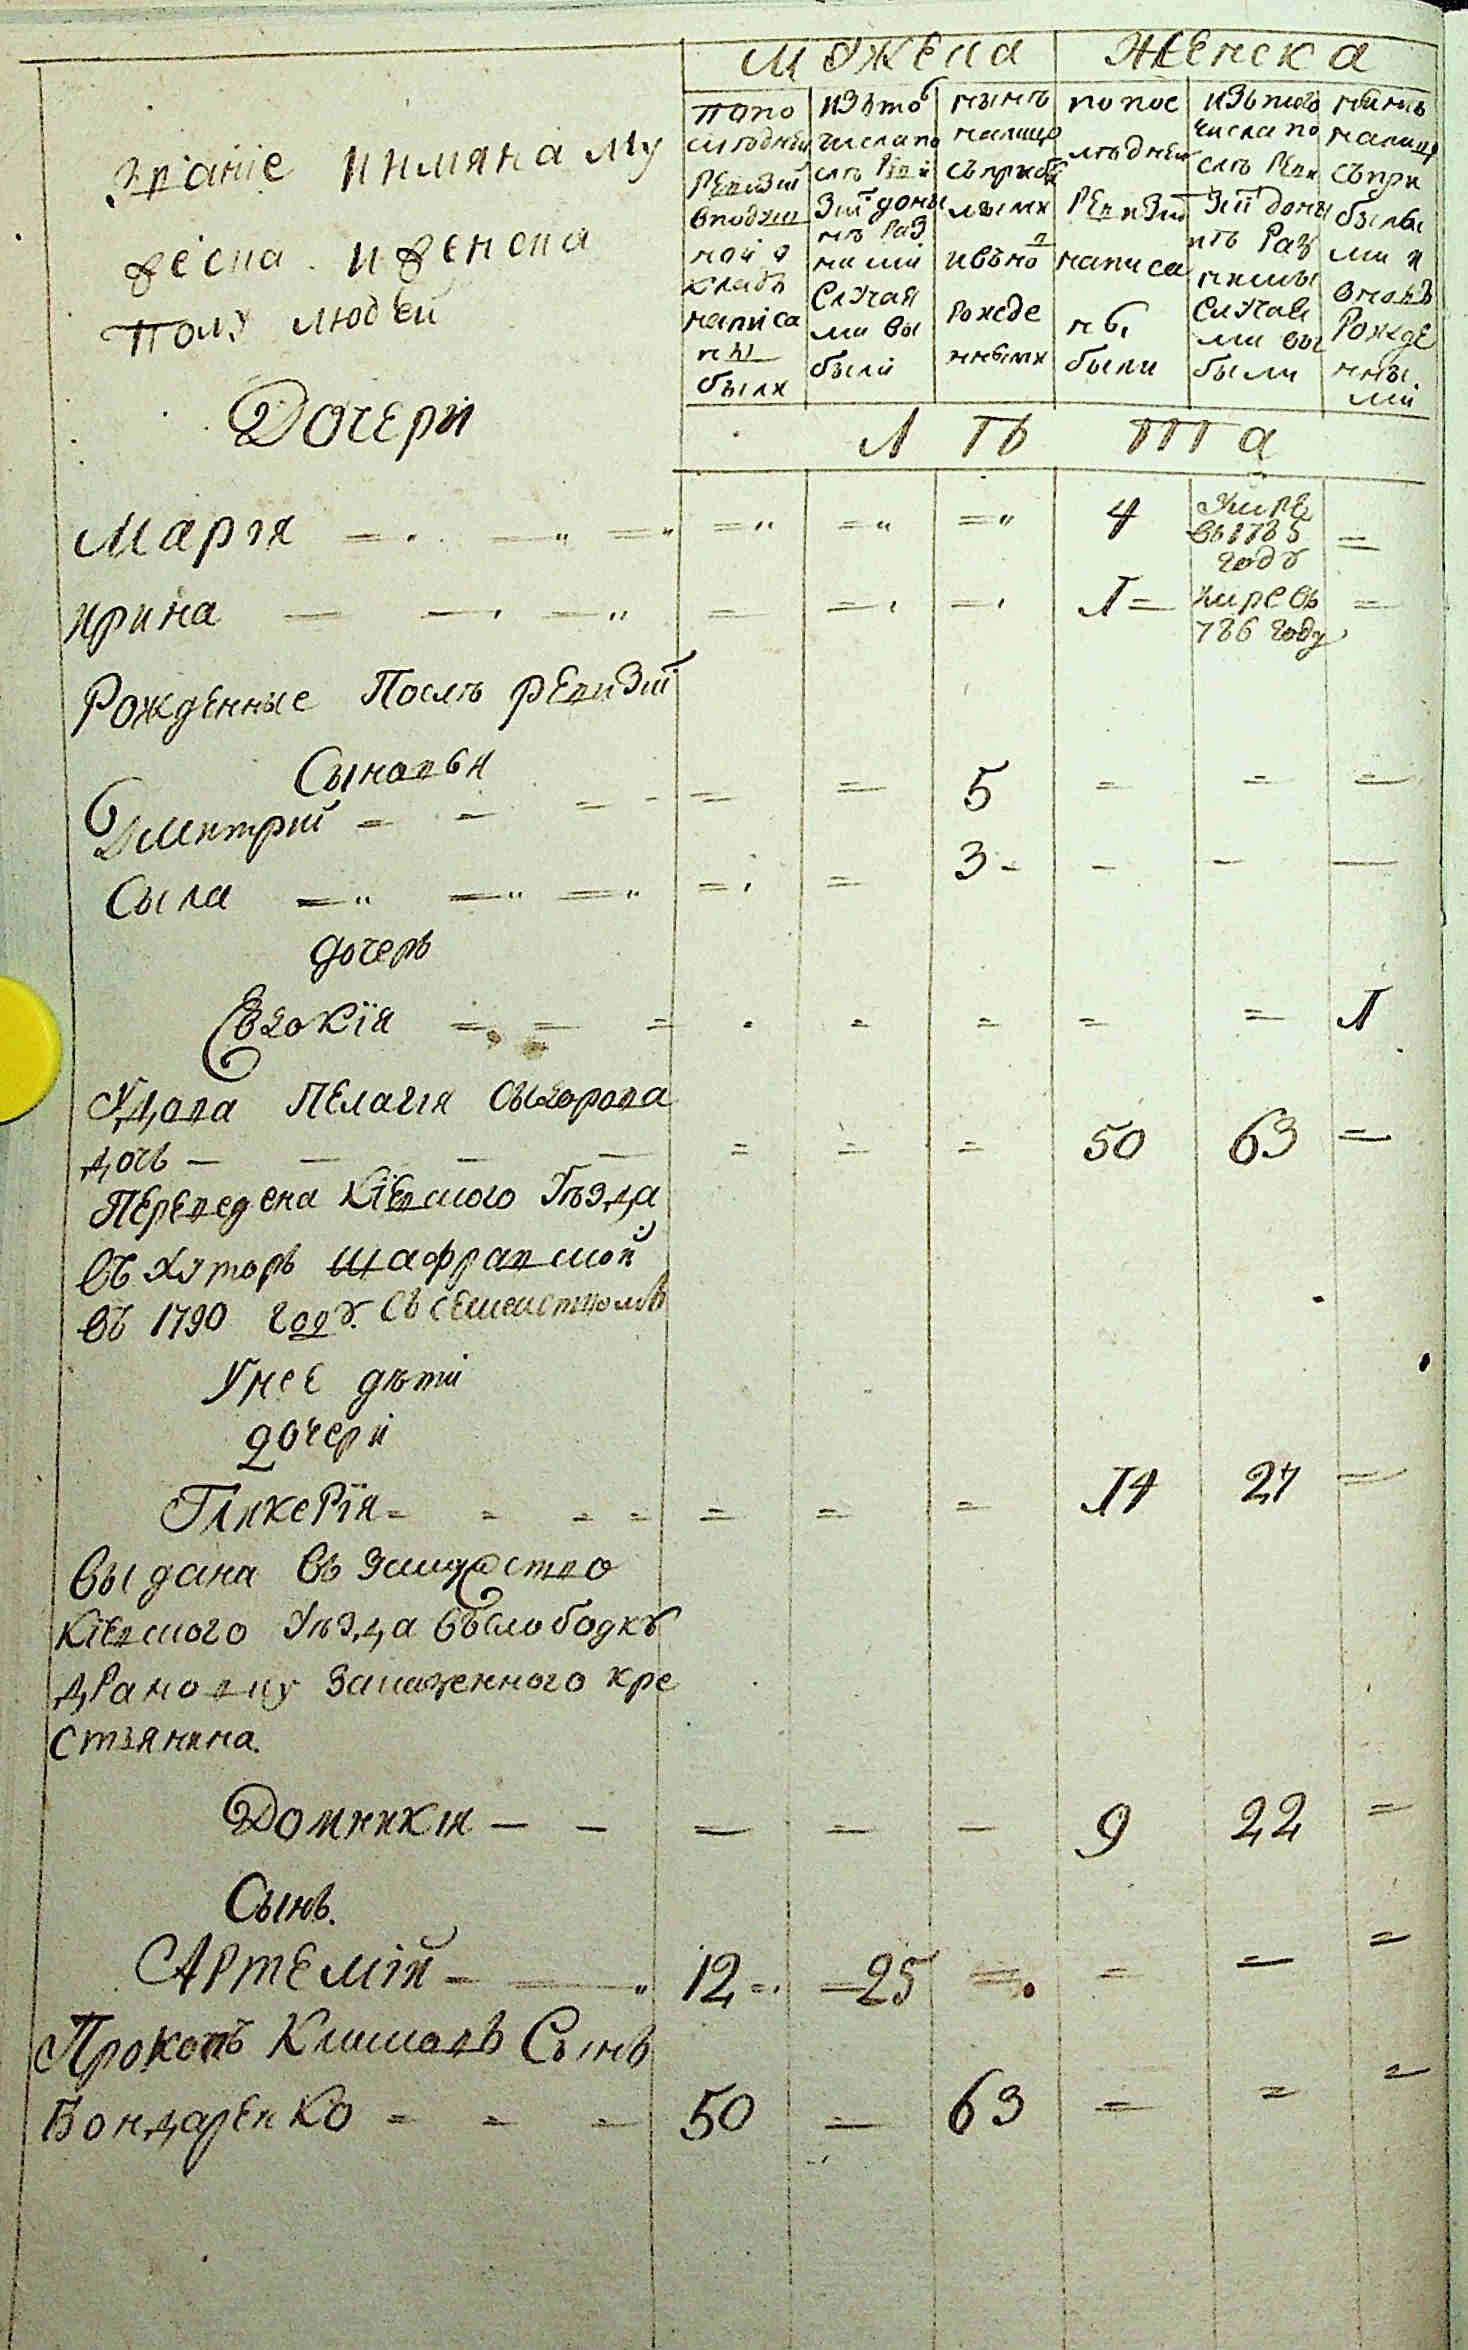 МУЖЕСКА ЖЕНСКА
Званіе иимяна му
жеска иженска
Полу людей
по по
следней
Ревизіи
в подуш
ной о
кладъ
написа
ны
были
изътого
числа по
слѣ Реви
зіи донынѣ раз
ными
Случая
ми вы
были
нынѣ
налицо
съприбы
лыми
ивъно в
Рожде
нными
по пос
лѣдней
Ревизіи
написа
ны
были
изътого
числа по
слѣ Реви
зіи доны
нѣ Раз
ными
Случая
ми вы
были
нынѣ
налицо
съ при
былы
ми и
вновь
Рожде
нны
ми
Дочери
Л Ѣ Т а
Марія 4 Умре въ1785 году
Ирина 1 умре въ 786 году
Рожденные После ревизіи
Сыновьи
Дмитрій 5
Сыла 3
дочерь
Евдокія 1
Удова Пелагія Сыдорова
дочь 50 63
Переведена Кіевского Уѣзда
въ Хуторъ шафравской
въ 1790 году Съ Семействомъ
Унее дѣти
дочери
Гликерія 14 27
выдана въ замужство
Кіевского Уѣзда въслободку
Драновку Захаженного кре
стьянина.
Домникія 9 22
Сынъ.
Артемій 12 25
Прокопъ Климовъ Сынъ
Бондаренко 50 63